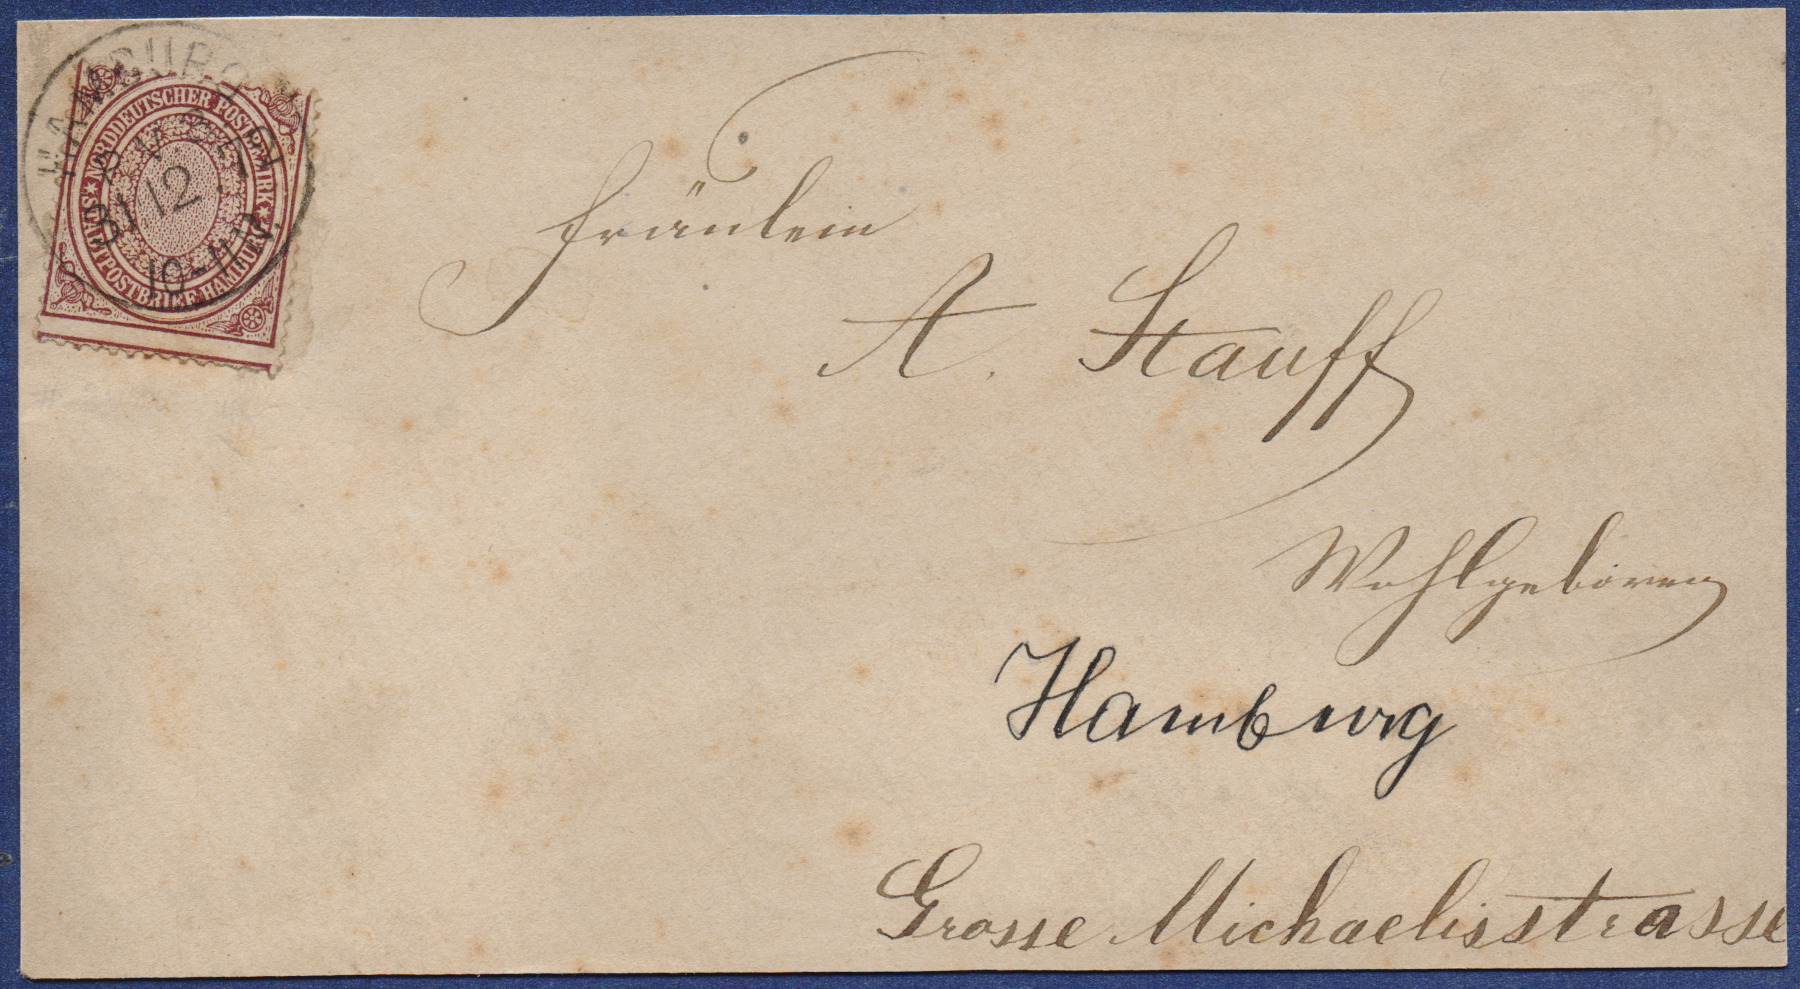 HAMBURG
NORDDEUTSCHER POSTBEZIRK
STADTPOSTBRIEF HAMBURG
31 12
10-11
Fräulein
A. Stauff
Wohlgeboren
Hamburg
Grosse Michaelisstrasse